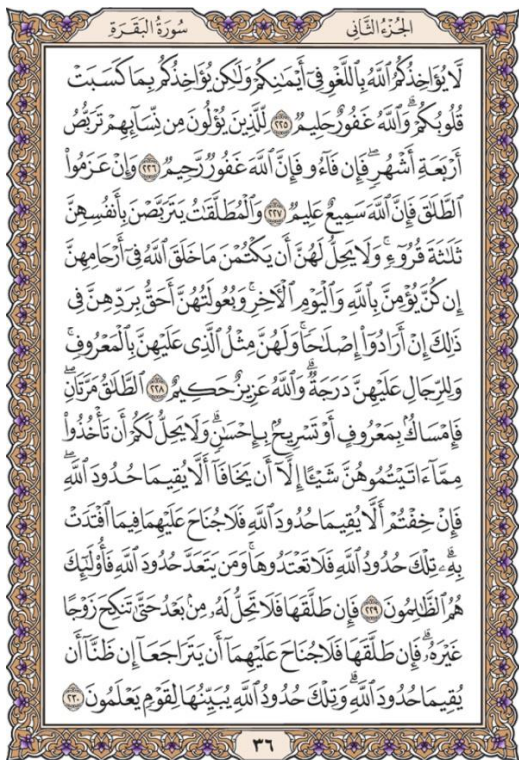 الجُزْءُ الثَّانِي سُورَةُ البَقَرَةِ
لَّا يُؤَاخِذُكُمُ اللَّهُ بِاللَّغْوِ فِي أَيْمَانِكُمْ وَلَٰكِن يُؤَاخِذُكُم بِمَا كَسَبَتْ
قُلُوبُكُمْ ۗ وَاللَّهُ غَفُورٌ حَلِيمٌ ٢٢٥ لِّلَّذِينَ يُؤْلُونَ مِن نِّسَائِهِمْ تَرَبُّصُ
أَرْبَعَةِ أَشْهُرٍ ۖ فَإِن فَاءُو فَإِنَّ اللَّهَ غَفُورٌ رَّحِيمٌ ٢٢٦ وَإِنْ عَزَمُوا۟
الطَّلَٰقَ فَإِنَّ اللَّهَ سَمِيعٌ عَلِيمٌ ٢٢٧ وَالْمُطَلَّقَٰتُ يَتَرَبَّصْنَ بِأَنفُسِهِنَّ
ثَلَٰثَةَ قُرُوءٍ ۚ وَلَا يَحِلُّ لَهُنَّ أَن يَكْتُمْنَ مَا خَلَقَ اللَّهُ فِي أَرْحَامِهِنَّ
إِن كُنَّ يُؤْمِنَّ بِاللَّهِ وَالْيَوْمِ الْآخِرِ ۚ وَبُعُولَتُهُنَّ أَحَقُّ بِرَدِّهِنَّ فِي
ذَٰلِكَ إِنْ أَرَادُوا۟ إِصْلَٰحًا ۚ وَلَهُنَّ مِثْلُ الَّذِي عَلَيْهِنَّ بِالْمَعْرُوفِ ۚ
وَلِلرِّجَالِ عَلَيْهِنَّ دَرَجَةٌ ۗ وَاللَّهُ عَزِيزٌ حَكِيمٌ ٢٢٨ الطَّلَٰقُ مَرَّتَانِ ۖ
فَإِمْسَاكٌ بِمَعْرُوفٍ أَوْ تَسْرِيحٌ بِإِحْسَٰنٍ ۗ وَلَا يَحِلُّ لَكُمْ أَن تَأْخُذُوا۟
مِمَّا ءَاتَيْتُمُوهُنَّ شَيْـًٔا إِلَّا أَن يَخَافَا أَلَّا يُقِيمَا حُدُودَ اللَّهِ ۖ
فَإِنْ خِفْتُمْ أَلَّا يُقِيمَا حُدُودَ اللَّهِ فَلَا جُنَاحَ عَلَيْهِمَا فِيمَا افْتَدَتْ
بِهِۦ ۗ تِلْكَ حُدُودُ اللَّهِ فَلَا تَعْتَدُوهَا ۚ وَمَن يَتَعَدَّ حُدُودَ اللَّهِ فَأُو۟لَٰئِكَ
هُمُ الظَّٰلِمُونَ ٢٢٩ فَإِن طَلَّقَهَا فَلَا تَحِلُّ لَهُۥ مِنۢ بَعْدُ حَتَّىٰ تَنكِحَ زَوْجًا
غَيْرَهُۥ ۗ فَإِن طَلَّقَهَا فَلَا جُنَاحَ عَلَيْهِمَا أَن يَتَرَاجَعَا إِن ظَنَّا أَن
يُقِيمَا حُدُودَ اللَّهِ ۗ وَتِلْكَ حُدُودُ اللَّهِ يُبَيِّنُهَا لِقَوْمٍ يَعْلَمُونَ ٢٣٠
٣٦